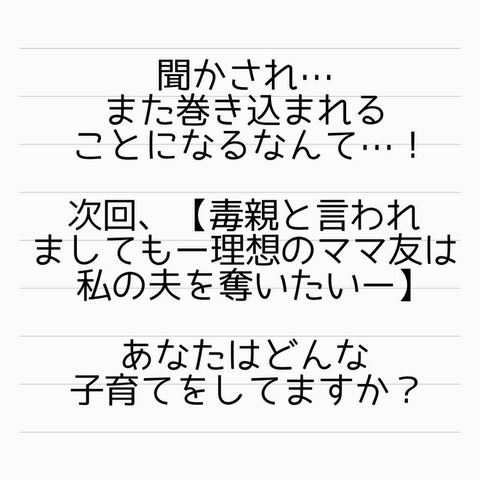 聞かされ…
また巻き込まれる
ことになるなんて…！
次回、【毒親と言われ
ましてもー理想のママ友は
私の夫を奪いたいー】
あなたはどんな
子育てをしてますか？